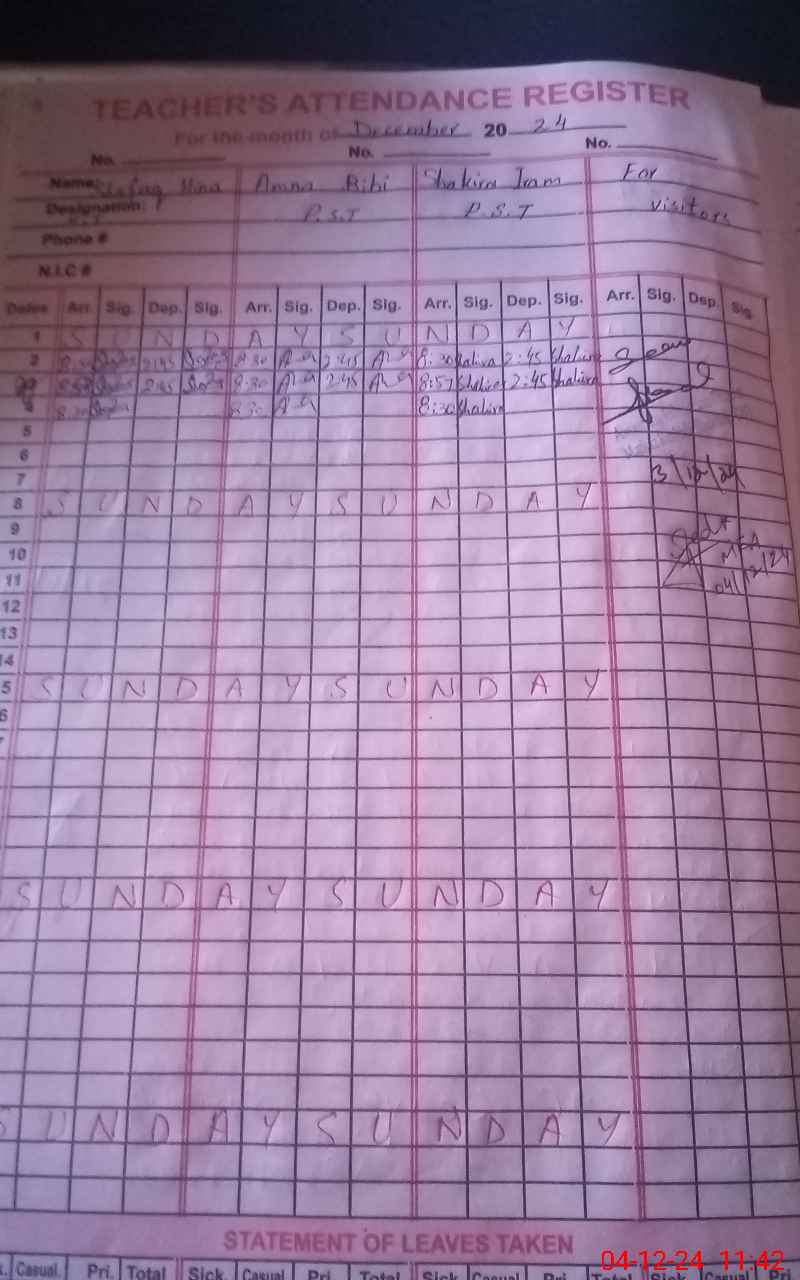 TEACHER'S ATTENDANCE REGISTER
For the month of December 20 24
No. No. No.
Name: Hina Amna Bibi Shakira Iram For
Designation: P.S.T P.S.T visitors
Phone #
N.I.C #
Dates Arr. Sig. Dep. Sig. Arr. Sig. Dep. Sig. Arr. Sig. Dep. Sig. Arr. Sig. Dep. Sig.
1 S U N D A Y S U N D A Y
2 8:30 2:45 8:30 2:45 8:30 Shakira 2:45 Shakira
2:45 8:30 2:45 8:57 Shakira 2:45 Shakira
4 8:30 8:30 8:30 Shakira
5
6
7 3/12/24
8 S U N D A Y S U N D A Y
9
10 MEA
11 04/12/24
12
13
14
5 S U N D A Y S U N D A Y
6
S U N D A Y S U N D A Y
S U N D A Y S U N D A Y
STATEMENT OF LEAVES TAKEN
Casual Pri. Total Sick Casual Pri. Total Sick Casual Pri. Total Sick Casual Pri
04-12-24 11:42